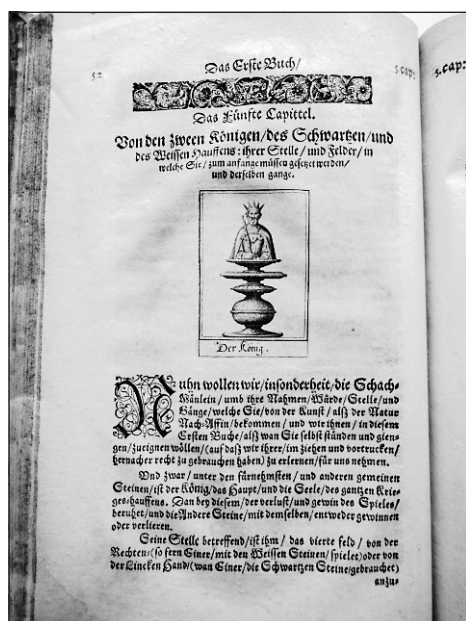 52
Das Erste Buch/
5. cap:
5. cap:
Das Fünfte Capittel.
Von den zween Königen/des Schwartzen/und
des Weissen Hauffens: ihrer Stelle/und Felder/in
welche Sie/zum anfange müssen gesetzet werden/
und derselben gange.
Der König.
Nuhn wollen wir/insonderheit/die Schach-
Mänlein/umb ihre Nahmen/Würde/Stelle/und
Gänge/welche Sie/von der Kunst/alß der Natur
Nach-Affin/bekommen/und wir ihnen/in diesem
Ersten Buche/alß wan Sie selbst stünden und gien-
gen/zueignen wöllen/(auf daß wir ihrer/im ziehen und vortrucken/
hernacher recht zu gebrauchen haben) zu erlernen/für uns nehmen.
Und zwar/unter den fürnehmsten/und anderen gemeinen
Steinen/ist der König/das Haupt/und die Seele/des gantzen Krie-
ges-hauffens. Dan bey diesem/der verlust/und gewin des Spieles/
beruhet/und die Andere Steine/mit demselben/entweder gewinnen
oder verlieren.
Seine Stelle betreffend/ist ihm/das vierte feld/von der
Rechten:(so fern Einer/mit den Weissen Steinen/spielet)oder von
der Lincken Hand/(wan Einer/die Schwartzen Steine/gebrauchet)
anzu-